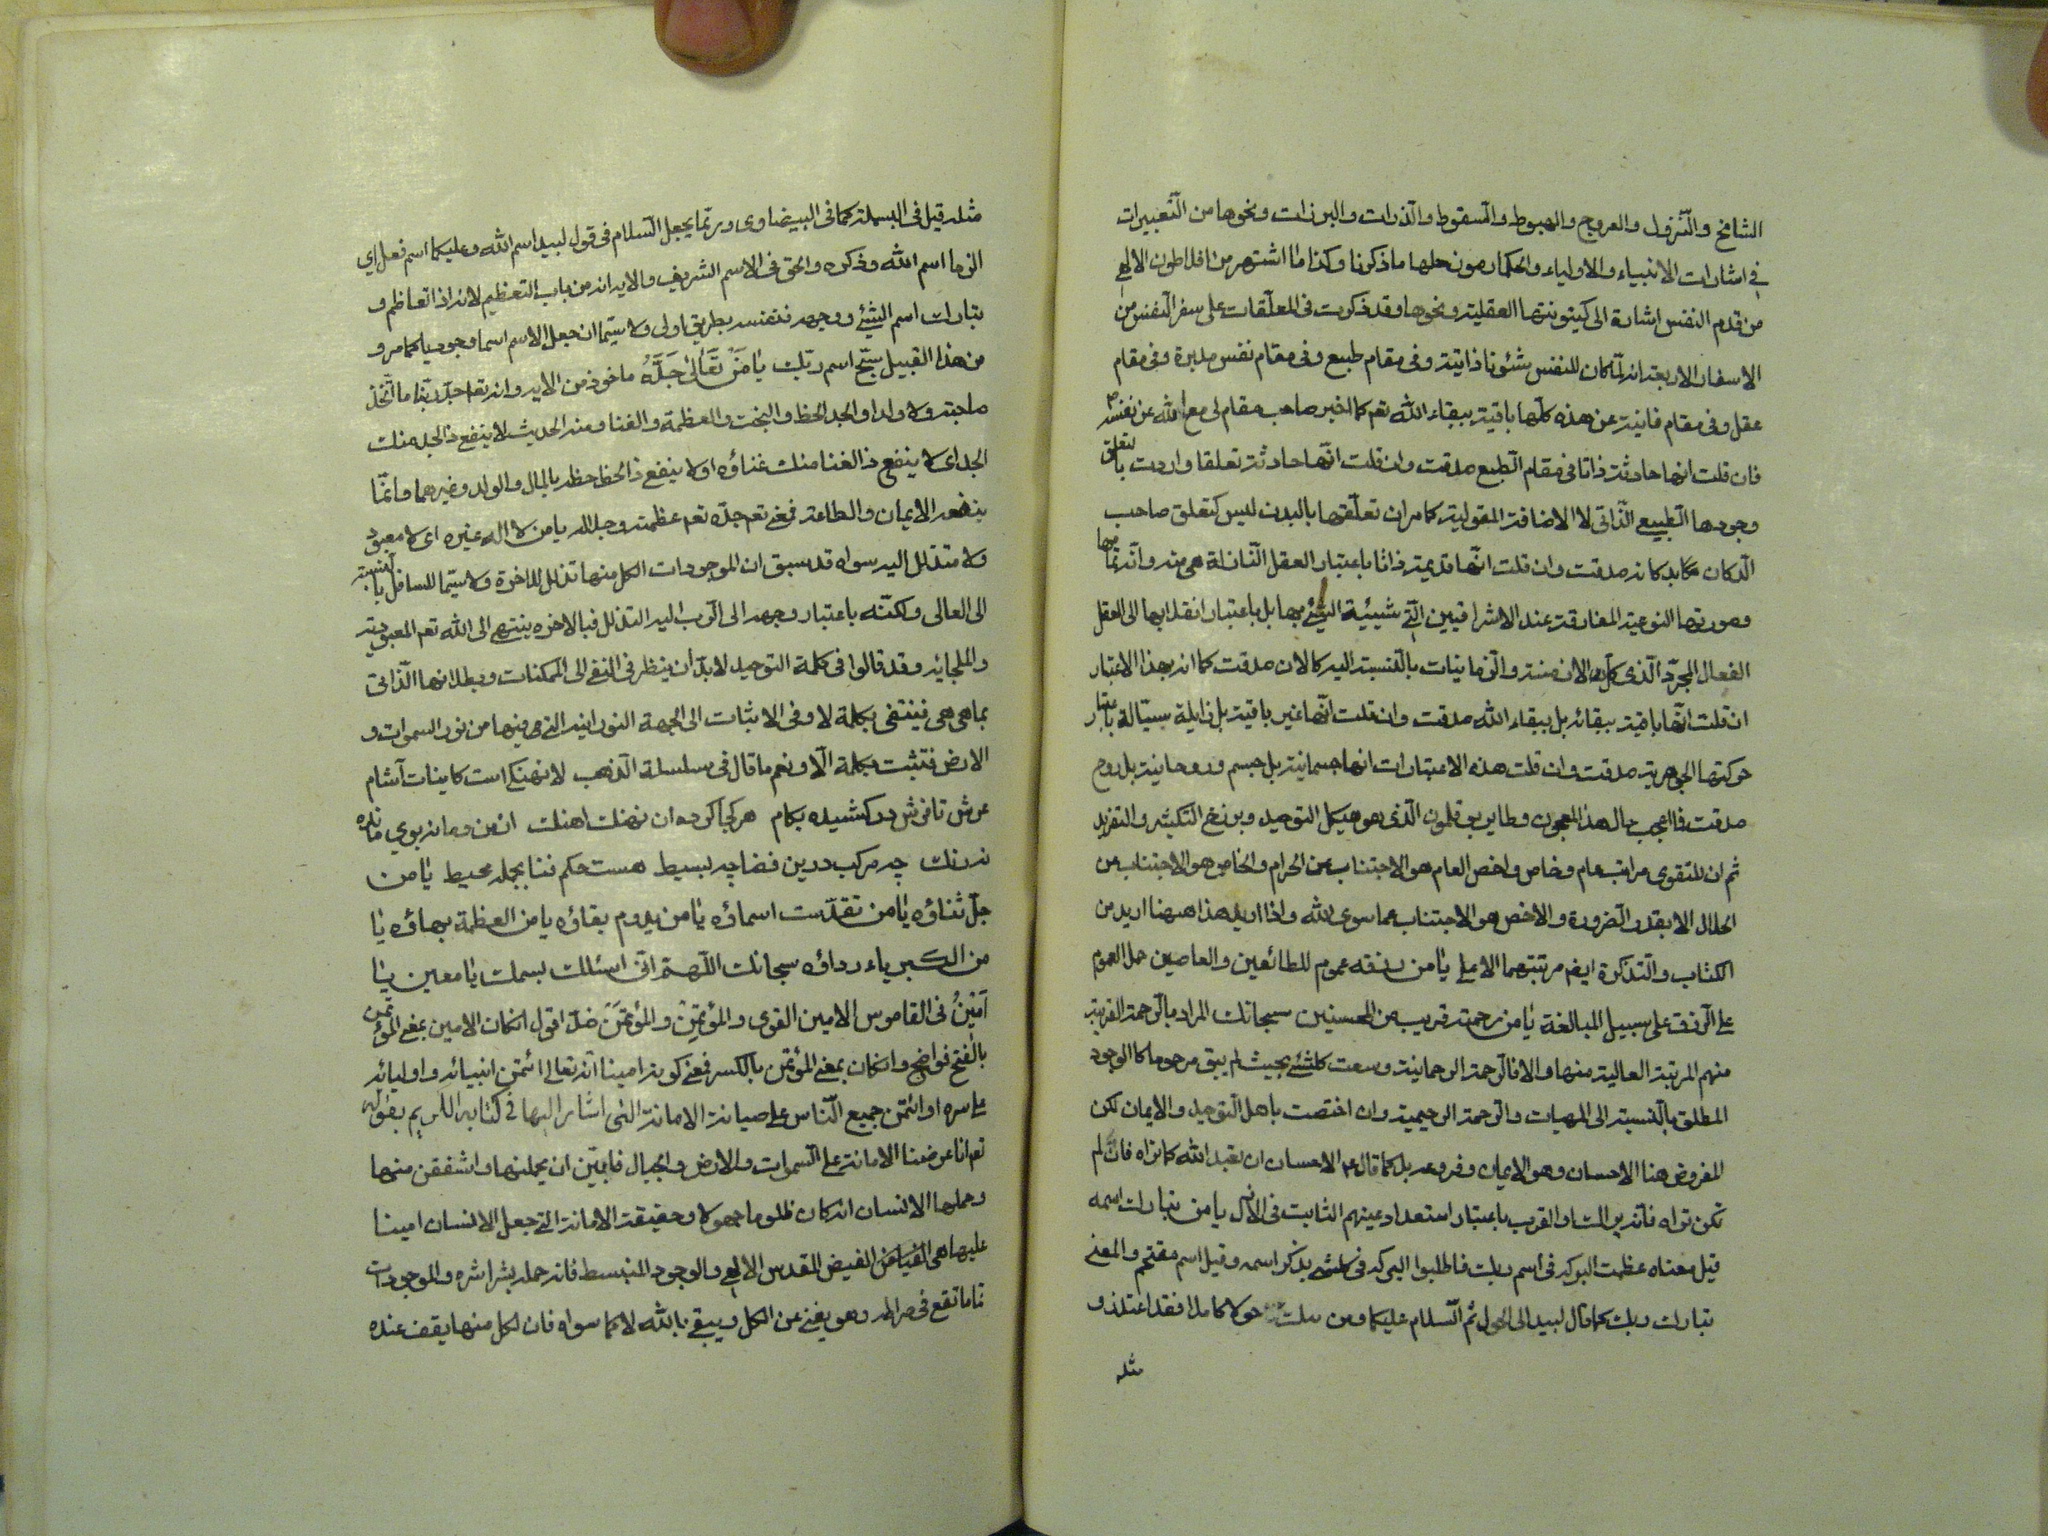 الشامخ والنزول والعروج والهبوط والسقوط والذرات والبرزات ونحوها من التعبيرات
في اشارات الانبياء والاولياء والحكماء مرموز حلها ما ذكرنا وكذا ما اشتهر من افلاطون الالهى
من قدم النفس اشارة الى كينونتها العقلية ونحوها وقد ذكرت فى المعلقات على سفر النفس من
الاسفار الاربعة انه لما كان للنفس شئونا ذاتية وفى مقام طبع وفى مقام نفس مدبرة وفى مقام
عقل وفى مقام فانية عن هذه كلها باقية ببقاء الله تعم كما اخبر صاحب مقام لى مع الله عن نفسه
فان قلت انها حادثة ذاتا فى مقام الطبع صدقت وان قلت انها حادثة تعلقا واردت بالتعلق
وجودها الطبيعى الذاتى لا الاضافة المقولية كما مر ان تعلقها بالبدن ليس كتعلق صاحب
الدكان بدكانه صدقت وان قلت انها قديمة ذاتا باعتبار العقل النازلة هى منه وانه تمامها
وصورتها النوعية المفارقة عند الاشراقيين التى شيئية الشئ بها بل باعتبار انقلابها الى العقل
الفعال المجرد الذى كل الازمنة والزمانيات بالنسبة اليه كالان صدقت كما انه بهذا الاعتبار
ان قلت انها باقية ببقائه بل ببقاء الله صدقت وان قلت انها غير باقية بل زايلة سيالة باعتبار
حركتها الجوهرية صدقت وان قلت هذه الاعتبارات انها جسمانية بل جسم وروحانية بل روح
صدقت فما اعجب حال هذا المعجون وطاير بوقلمون الذى هو هيكل التوحيد وبرزخ التكثير والتفريد
ثم ان للتقوى مراتب عام وخاص واخص العام هو الاجتناب عن الحرام والخاص هو الاجتناب عن
الحلال الا بقدر الضرورة والاخص هو الاجتناب عما سوى الله واذا اريد هذا ههنا اريد من
الكتاب والتذكرة ايضم مرتبتهما الاعلى يا من رزقه عموم للطائعين والعاصين حمل العموم
على الرزق على سبيل المبالغة يا من رحمته قريب من المحسنين سبحانك المراد بالرحمة القريبة
منهم المرتبة العالية منها والا فالرحمة الرحمانية وسعت كلشئ بحيث لم يبق مرحوما كالوجود
المطلق بالنسبة الى المهيات والرحمة الرحيمية وان اختصت باهل التوحيد والايمان لكن
المفروض هنا الاحسان وهو الايمان وفروعه بل كما قال ع الاحسان ان تعبد الله كانك تراه فان لم
تكن تراه فانه يراك والقريب باعتبار استعداد عينهم الثابت فى الازل يا من تبارك اسمه
قيل معناه عظمت البركة فى اسم ربك فاطلبوا البركة فى كلشئ بذكر اسمه وقيل اسم مقتحم والمعنى
تبارك ربك كما قال لبيد الى الحول ثم السلام عليكما ومن يبك حولا كاملا فقد اعتذر و
مثله
مثله قيل فى البسملة كما فى البيضاوى وربما يجعل السلام فى قول لبيد اسم الله وعليكما اسم فعل اى
الزما اسم الله وذكره والحق فى الاسم الشريف والاية انه من باب التعظيم لانه اذا تعاظم و
تبارك اسم الشئ ووجهه فنفسه بطريق اولى ولا سيما ان جعل الاسم اسما وجوديا كما مر و
من هذا القبيل سبح اسم ربك يا من تعالى جده ماخوذ من الاية وانه تعالى جد ربنا ما اتخذ
صاحبة ولا ولدا والجد الحظ والبخت والعظمة والغنا ومنه الحديث لا ينفع ذا الجد منك
الجد اى لا ينفع ذا الغنا منك غناؤه او لا ينفع ذا الحظ حظه بالمال والولد وغيرهما وانما
ينفعه الايمان والطاعة فمعنى تعم جده تعم عظمته وجلاله يا من لا اله غيره اى لا معبود
ولا متذلل اليه سواه قد سبق ان الموجودات الكل منها تذلل للاخرة ولا سيما للسافل بالنسبة
الى العالى ولكنه باعتبار وجهه الى الرب اليه التذلل فبالاخره ينتهى الى الله تعم المعبودية
والملجائية وقد قالوا فى كلمة التوحيد لابد ان ينظر فى النفى الى الممكنات وبطلانها الذاتى
بما هى هى فينتفى بكلمة لا وفى الاثبات الى الجهة النورانية التى فيها من نور السموات و
الارض فتثبت بكلمة الا ونعم ما قال فى سلسلة الذهب لا نهنگ است كاينات آشام
عرش تا فرش در كشيده بكام هر كجا كرده ان نهنك اهنك از من و ما نه بوى مانده
نه رنك چه مركب درين فضا چه بسيط هست حكم فنا بجمله محيط يا من
جل ثناؤه يا من تقدست اسماؤه يا من يدوم بقاؤه يا من العظمة بهاؤه يا
من الكبرياء رداؤه سبحانك اللهم انى اسئلك بسمك يا معين يا
امين فى القاموس الامين القوى والمؤتمن والمؤتمن ضد اقول ان كان الامين بمعنى المؤتمن
بالفتح فواضح وان كان بمعنى المؤتمن بالكسر فمعنى كونه امينا انه تعالى ائتمن انبيائه واوليائه
على سره او ائتمن جميع الناس على صيانة الامانة التى اشار اليها فى كتابه الكريم بقوله
تعم انا عرضنا الامانة على السموات والارض والجبال فابين ان يحملنها واشفقن منها
وحملها الانسان انه كان ظلوما جهولا وحقيقة الامانة التى جعل الانسان امينا
عليها هى الفيض المقدس الالهى والوجود المنبسط فانه حمله بشراشره والموجودات
تماما تقع فى صراطه وهو يفنى عن الكل ويبقى بالله لا كما سواه فان لكل منها يقف عنده